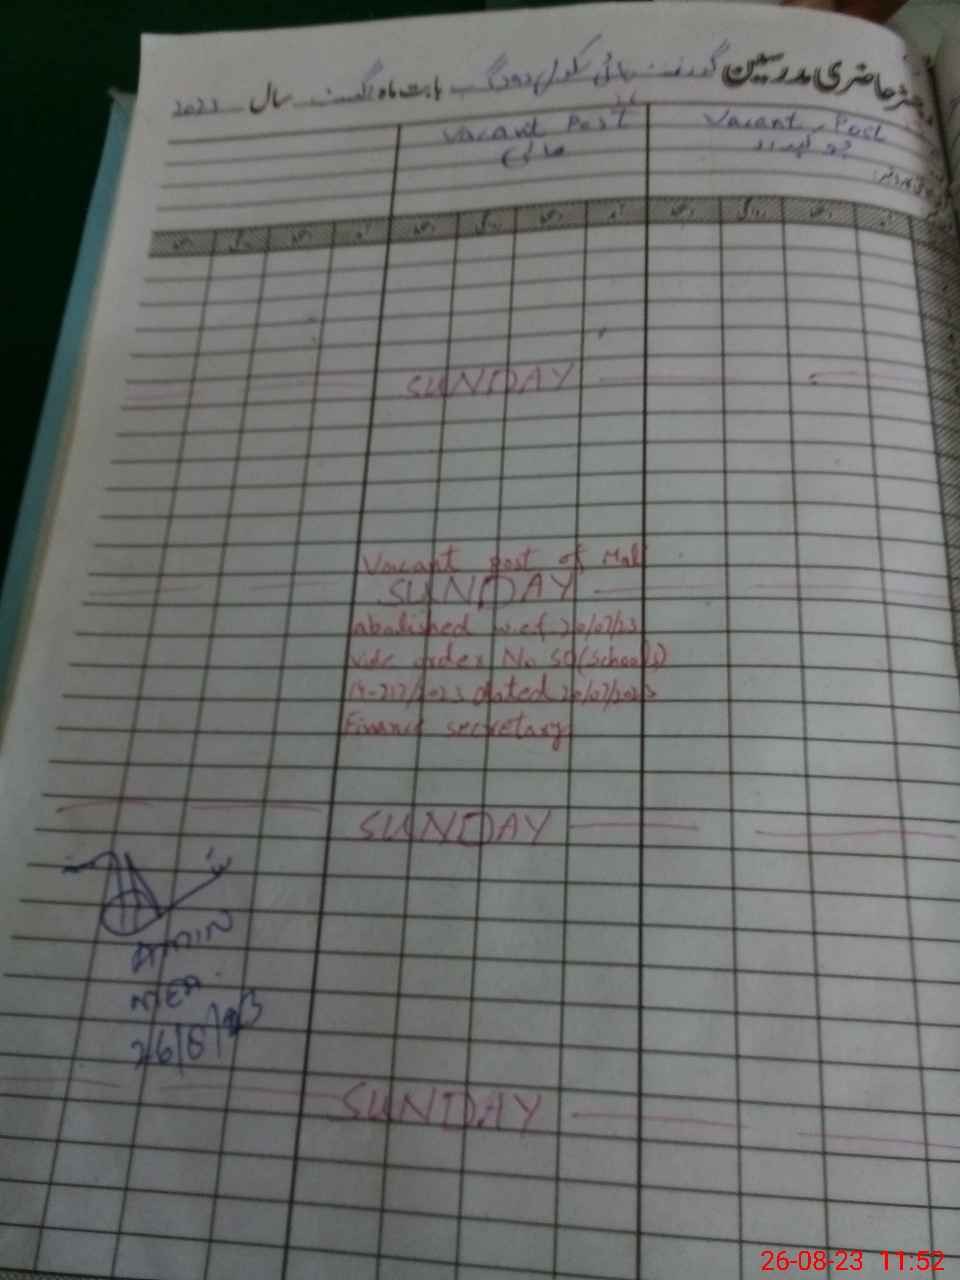 رجسٹر حاضری مدرسین گورنمنٹ ہائی سکول بابت ماہ اگست سال 2023
Vacant Post
Vacant Post
مالی
چوکیدار
SUNDAY
Vacant post of Mali
SUNDAY
abolished w.e.f 20/07/23
vide order No SO(Schools)
dated 20/07/2023
Finance secretary
SUNDAY
AMIN
26/8/23
SUNDAY
26-08-23 11:52